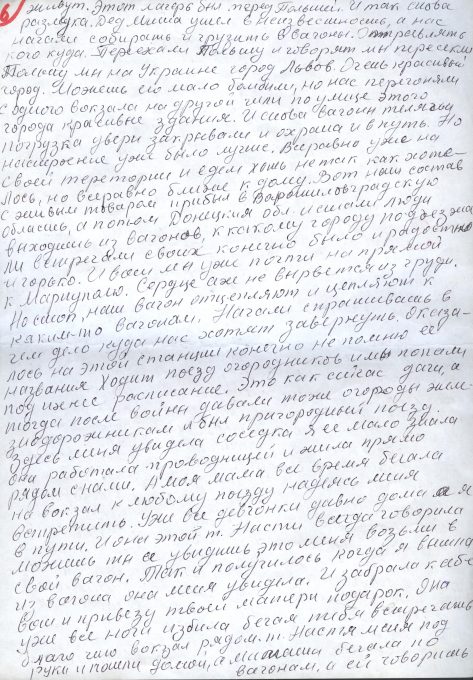 6
живут. Этот лагерь был перед Польшей. И так снова
разлука. Дед Миша ушел в неизвестность, а нас
начали собирать и грузить в вагоны. Отправлять
кого куда. Переехали Польшу и говорят мы пересекли
Польшу мы на Украине город Львов. Очень красивый
город. Может его мало бомбили, но нас перегоняли
с одного вокзала на другой шли по улице этого
города красивые здания. И снова вагоны телячьи
погрузка двери закрывали и охрана и в путь. Но
настроение уже было лучше. Всеравно уже на
своей теретории и едем хоть не так как хоте-
лось, но всеравно ближе к дому. Вот наш состав
с живым товаром прибыл в Ворошиловградскую
область, а потом Донецкая обл. и стали люди
выходить из вагонов, к какому городу подъезжа
ли встречали своих конечно было и радостно
и горько. И вот мы уже почти на прямой
к Мариуполю. Сердце аж не вырвется из груди.
Но стоп, наш вагон отцепляют и цепляют к
каким-то вагонам. Начали спрашивать в
чем дело куда нас хотят завернуть. Оказа-
лось на этой станции конечно не помню ее
названия ходит поезд огородников и мы попали
под ихнее расписание. Это как сейчас дачи, а
тогда после войны давали тоже огороды желе
знодорожникам и был пригородный поезд.
Здесь меня увидела соседка я ее мало знала
она работала проводницей и жила прямо
рядом с нами. А моя мама все время бегала
на вокзал к любому поезду надеясь меня
встретить. Уже все девчонки давно дома а я
в пути. И она этой т. Насти всегда говорила
можешь ты ее увидишь это меня возьми в
свой вагон. Так и получилось когда я вышла
из вагона она меня увидела. И забрала к себе
вот и привезу твоей матери подарок. Она
уже все ноги избила бегая тебя встречать
благо что вокзал рядом. т. Настя меня под
руки и пошли домой, а мамаша бегала по
вагонам, а ей говорить